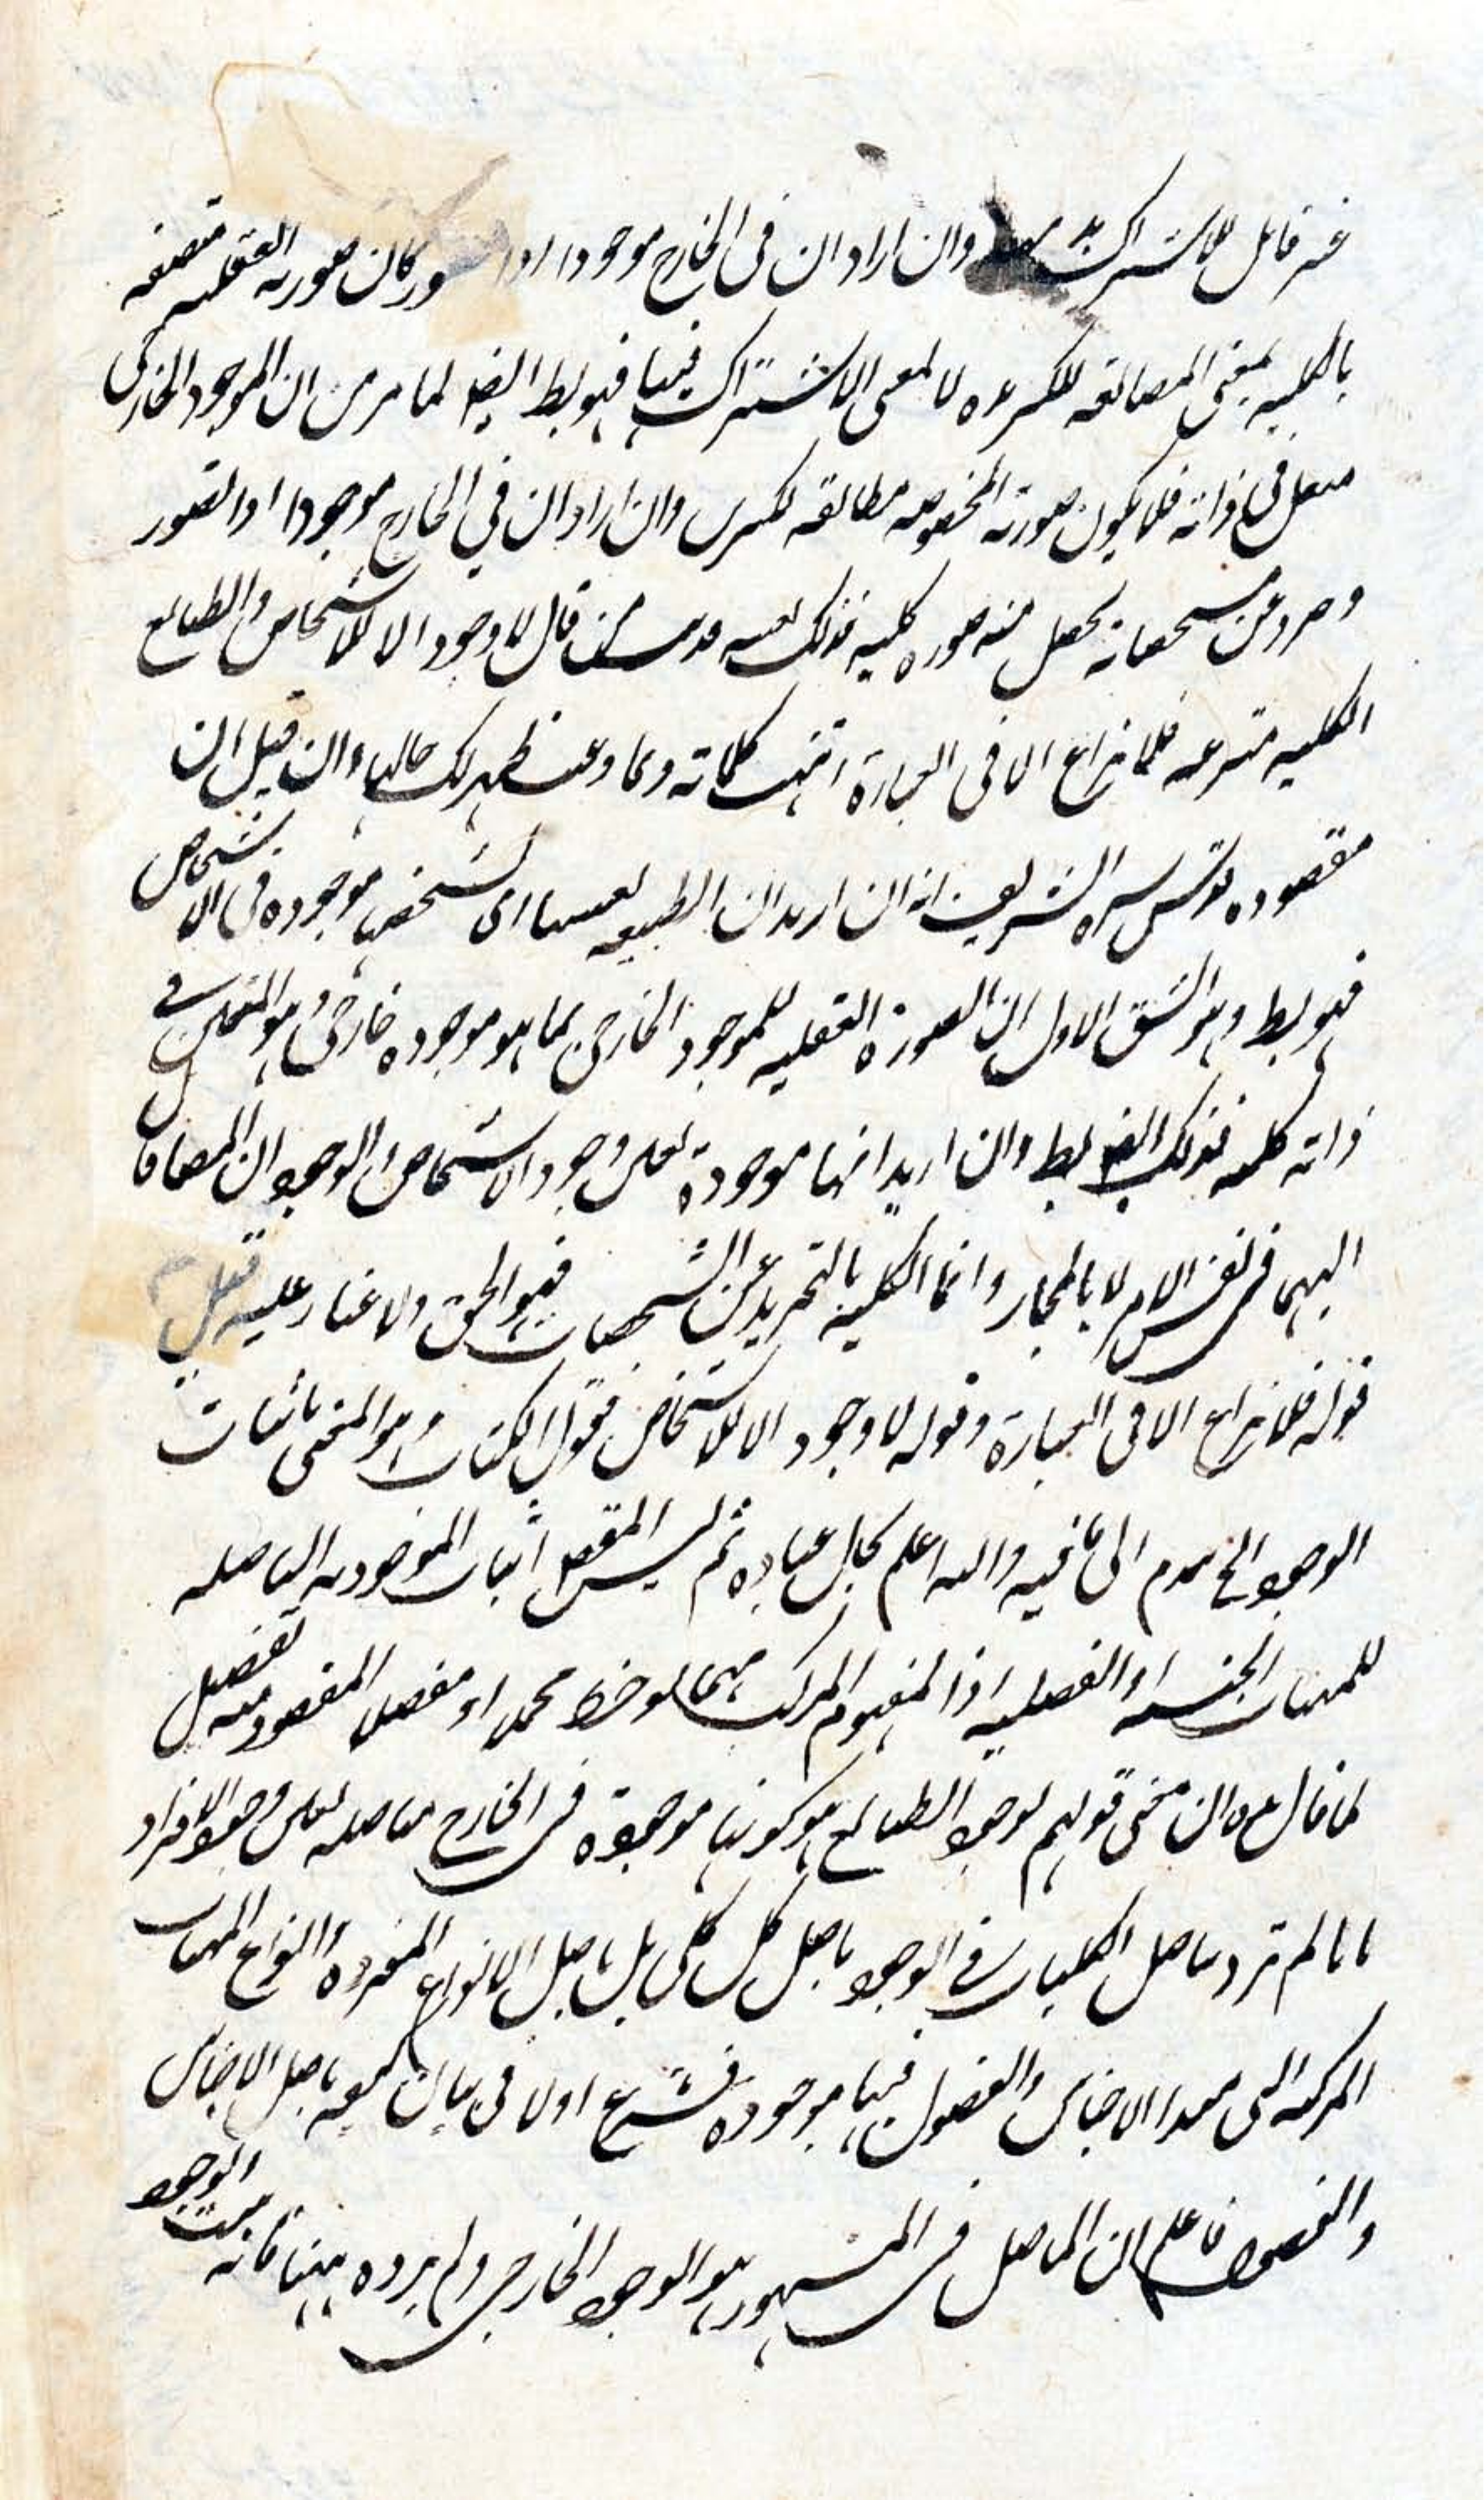 غير قابل للاشتراك وان اراد ان في الخارج موجودا اذا تصور كان صورته العقلية متصفة
بالكلية بمعنى المطابقة لكثيره لا بمعنى الاشتراك فيها فهو بط ايضا لما مر من ان الموجود الخارجي
متعين في ذاته فلا يكون صورته المخصوصة مطابقة لكثيرين وان اراد ان في الخارج موجودا اذا تصور
وجرد عن مشخصاته يحصل منه صوره كلية فذلك بعينه مذهب من قال لا وجود الا للاشخاص والطبايع
الكلية منتزعه فلا نزاع الا في العبارة انتهت كلماته وبما وعيت ظهر لك حالها وان قيل ان
مقصوده قدس سره الشريف انه ان اريد ان الطبيعه نفسها اى بشخصها موجودة في الاشخاص
فهو بط وهو الشق الاول او ان الصورة العقليه للموجود الخارجي بما هو موجود خارجي وهو المتعين في
ذاته كلية فذلك ايضا بط وان اريد انها موجودة بعين وجود الاشخاص والوجود ان المضافان
اليهما في نفس الامر لا بالمجاز وانما الكلية بالتجريد عن المشخصات فهو الحق ولا غبار عليه قيل
قوله فلا نزاع الا في العبارة وقوله لا وجود الا للاشخاص فقول الكتاب وهو المعنى باثبات
الوجود الخ الى ما فيه والله اعلم بحال عباده ثم ليس المقصود اثبات الموجودية التاصليه
للمهيات الجنسيه او الفصليه اذ المفهوم المركب منهما لوحظ مجملا او مفصلا المقصود منه تفصيل
لما قال من ان معنى قولهم لوجود الطبايع هو كونها موجودة في الخارج متاصله بعين وجود الافراد
بانا لم نرد بتاصل الكليات في الوجود تاصل كل كلي بل تاصل الانواع المفردة وانواع المهيات
المركبه التي مبدا الاجناس والفصول فيها موجوده فشرع اولا في بيان كيفيه تاصل الاجناس
والفصول فاعلم ان التاصل في المشهور هو الوجود الخارجي ولم يرده ههنا فانه مثبت الوجود